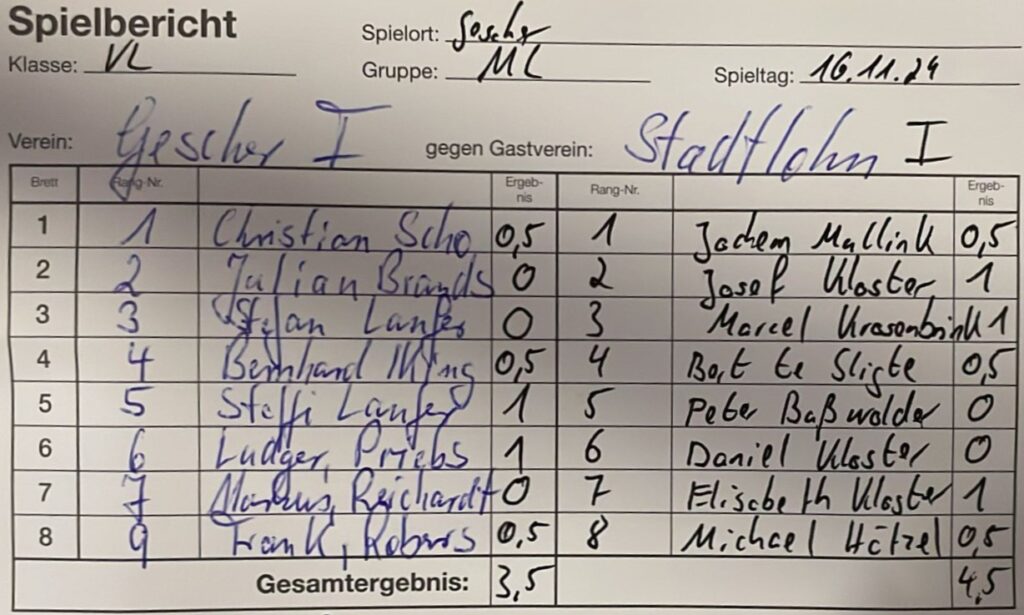 Spielbericht
Spielort: Gescher
Klasse: VL Gruppe: ML Spieltag: 16.11.24
Verein: Gescher I gegen Gastverein: Stadtlohn I
Brett Rang-Nr. Ergeb-nis Rang-Nr. Ergeb-nis
1 1 Christian Scho 0,5 1 Jochem Mallink 0,5
2 2 Julian Brands 0 2 Josef Kloster 1
3 3 Stefan Lanfer 0 3 Marcel Krasenbrink 1
4 4 Bernhard 0,5 4 Bart te Sligte 0,5
5 5 Steffi Lanfer 1 5 Peter Baßwolder 0
6 6 Ludger, Priebs 1 6 Daniel Kloster 0
7 7 Markus, Reichardt 0 7 Elisabeth Kloster 1
8 9 Frank, Robers 0,5 8 Michael Hötzel 0,5
Gesamtergebnis: 3,5 4,5